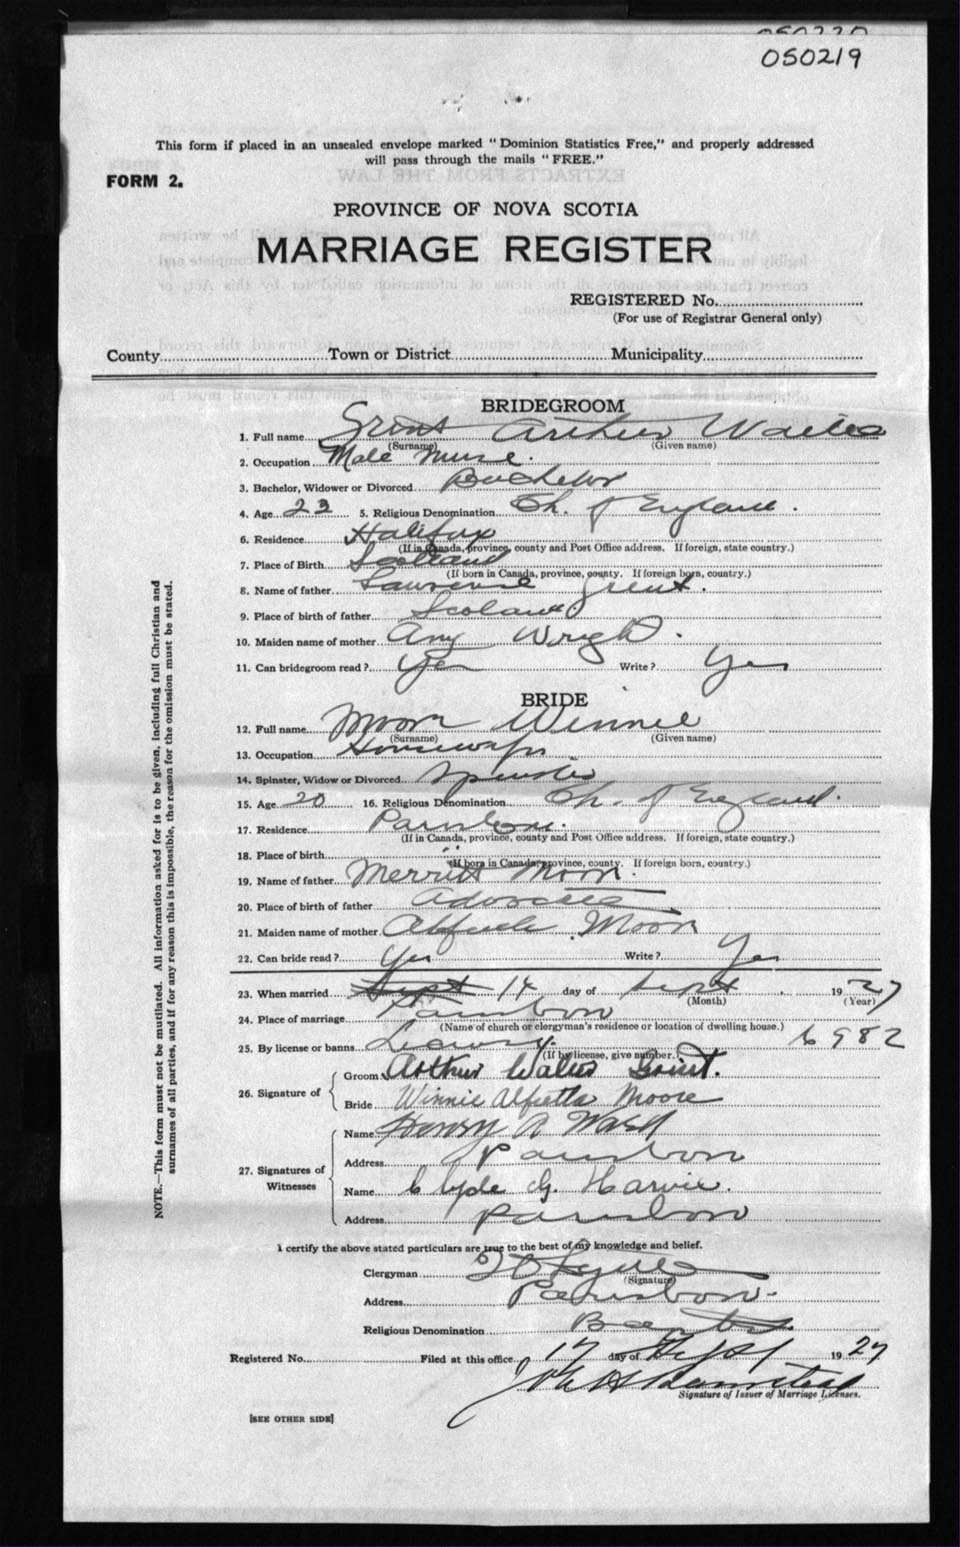 050220
050219
This form if placed in an unsealed envelope marked "Dominion Statistics Free," and properly addressed
will pass through the mails "FREE."
FORM 2.
PROVINCE OF NOVA SCOTIA
MARRIAGE REGISTER
REGISTERED No.
(For use of Registrar General only)
County Town or District Municipality
BRIDEGROOM
1. Full name Grint Arthur Walter
(Surname) (Given name)
2. Occupation Male Nurse.
3. Bachelor, Widower or Divorced Bachelor
4. Age 23 5. Religious Denomination Ch. of England.
6. Residence Halifax
(If in Canada, province, county and Post Office address. If foreign, state country.)
7. Place of Birth Scotland
(If born in Canada, province, county. If foreign born, country.)
8. Name of father Lawrence Grint.
9. Place of birth of father Scoland
10. Maiden name of mother Amy Wright.
11. Can bridegroom read? Yes Write? Yes
BRIDE
12. Full name Moore Winnie
(Surname) (Given name)
13. Occupation Housewife
14. Spinster, Widow or Divorced Spinster
15. Age 20 16. Religious Denomination Ch. of England.
17. Residence Parrsboro.
(If in Canada, province, county and Post Office address. If foreign, state country.)
18. Place of birth "
(If born in Canada, province, county. If foreign born, country.)
19. Name of father Merritt Moore.
20. Place of birth of father Advocate
21. Maiden name of mother Moore
22. Can bride read? Yes Write? Yes
23. When married Sept 14 day of Sept 1927
(Month) (Year)
24. Place of marriage Parrsboro
(Name of church or clergyman's residence or location of dwelling house.)
25. By license or banns License. 6982
(If by license, give number.)
26. Signature of
Groom Arthur Walter Grint.
Bride Winnie Alfretta Moore
27. Signatures of Witnesses
Name Henry A Wasd
Address Parrsboro
Name Clyde G. Harvie.
Address Parrsboro
I certify the above stated particulars are true to the best of my knowledge and belief.
Clergyman
(Signature)
Address Parrsboro.
Religious Denomination Baptist
Registered No. Filed at this office 17 day of Sept 1927
Signature of Issuer of Marriage Licenses.
[SEE OTHER SIDE]
NOTE.—This form must not be mutilated. All information asked for is to be given, including full Christian and
surnames of all parties, and if for any reason this is impossible, the reason for the omission must be stated.